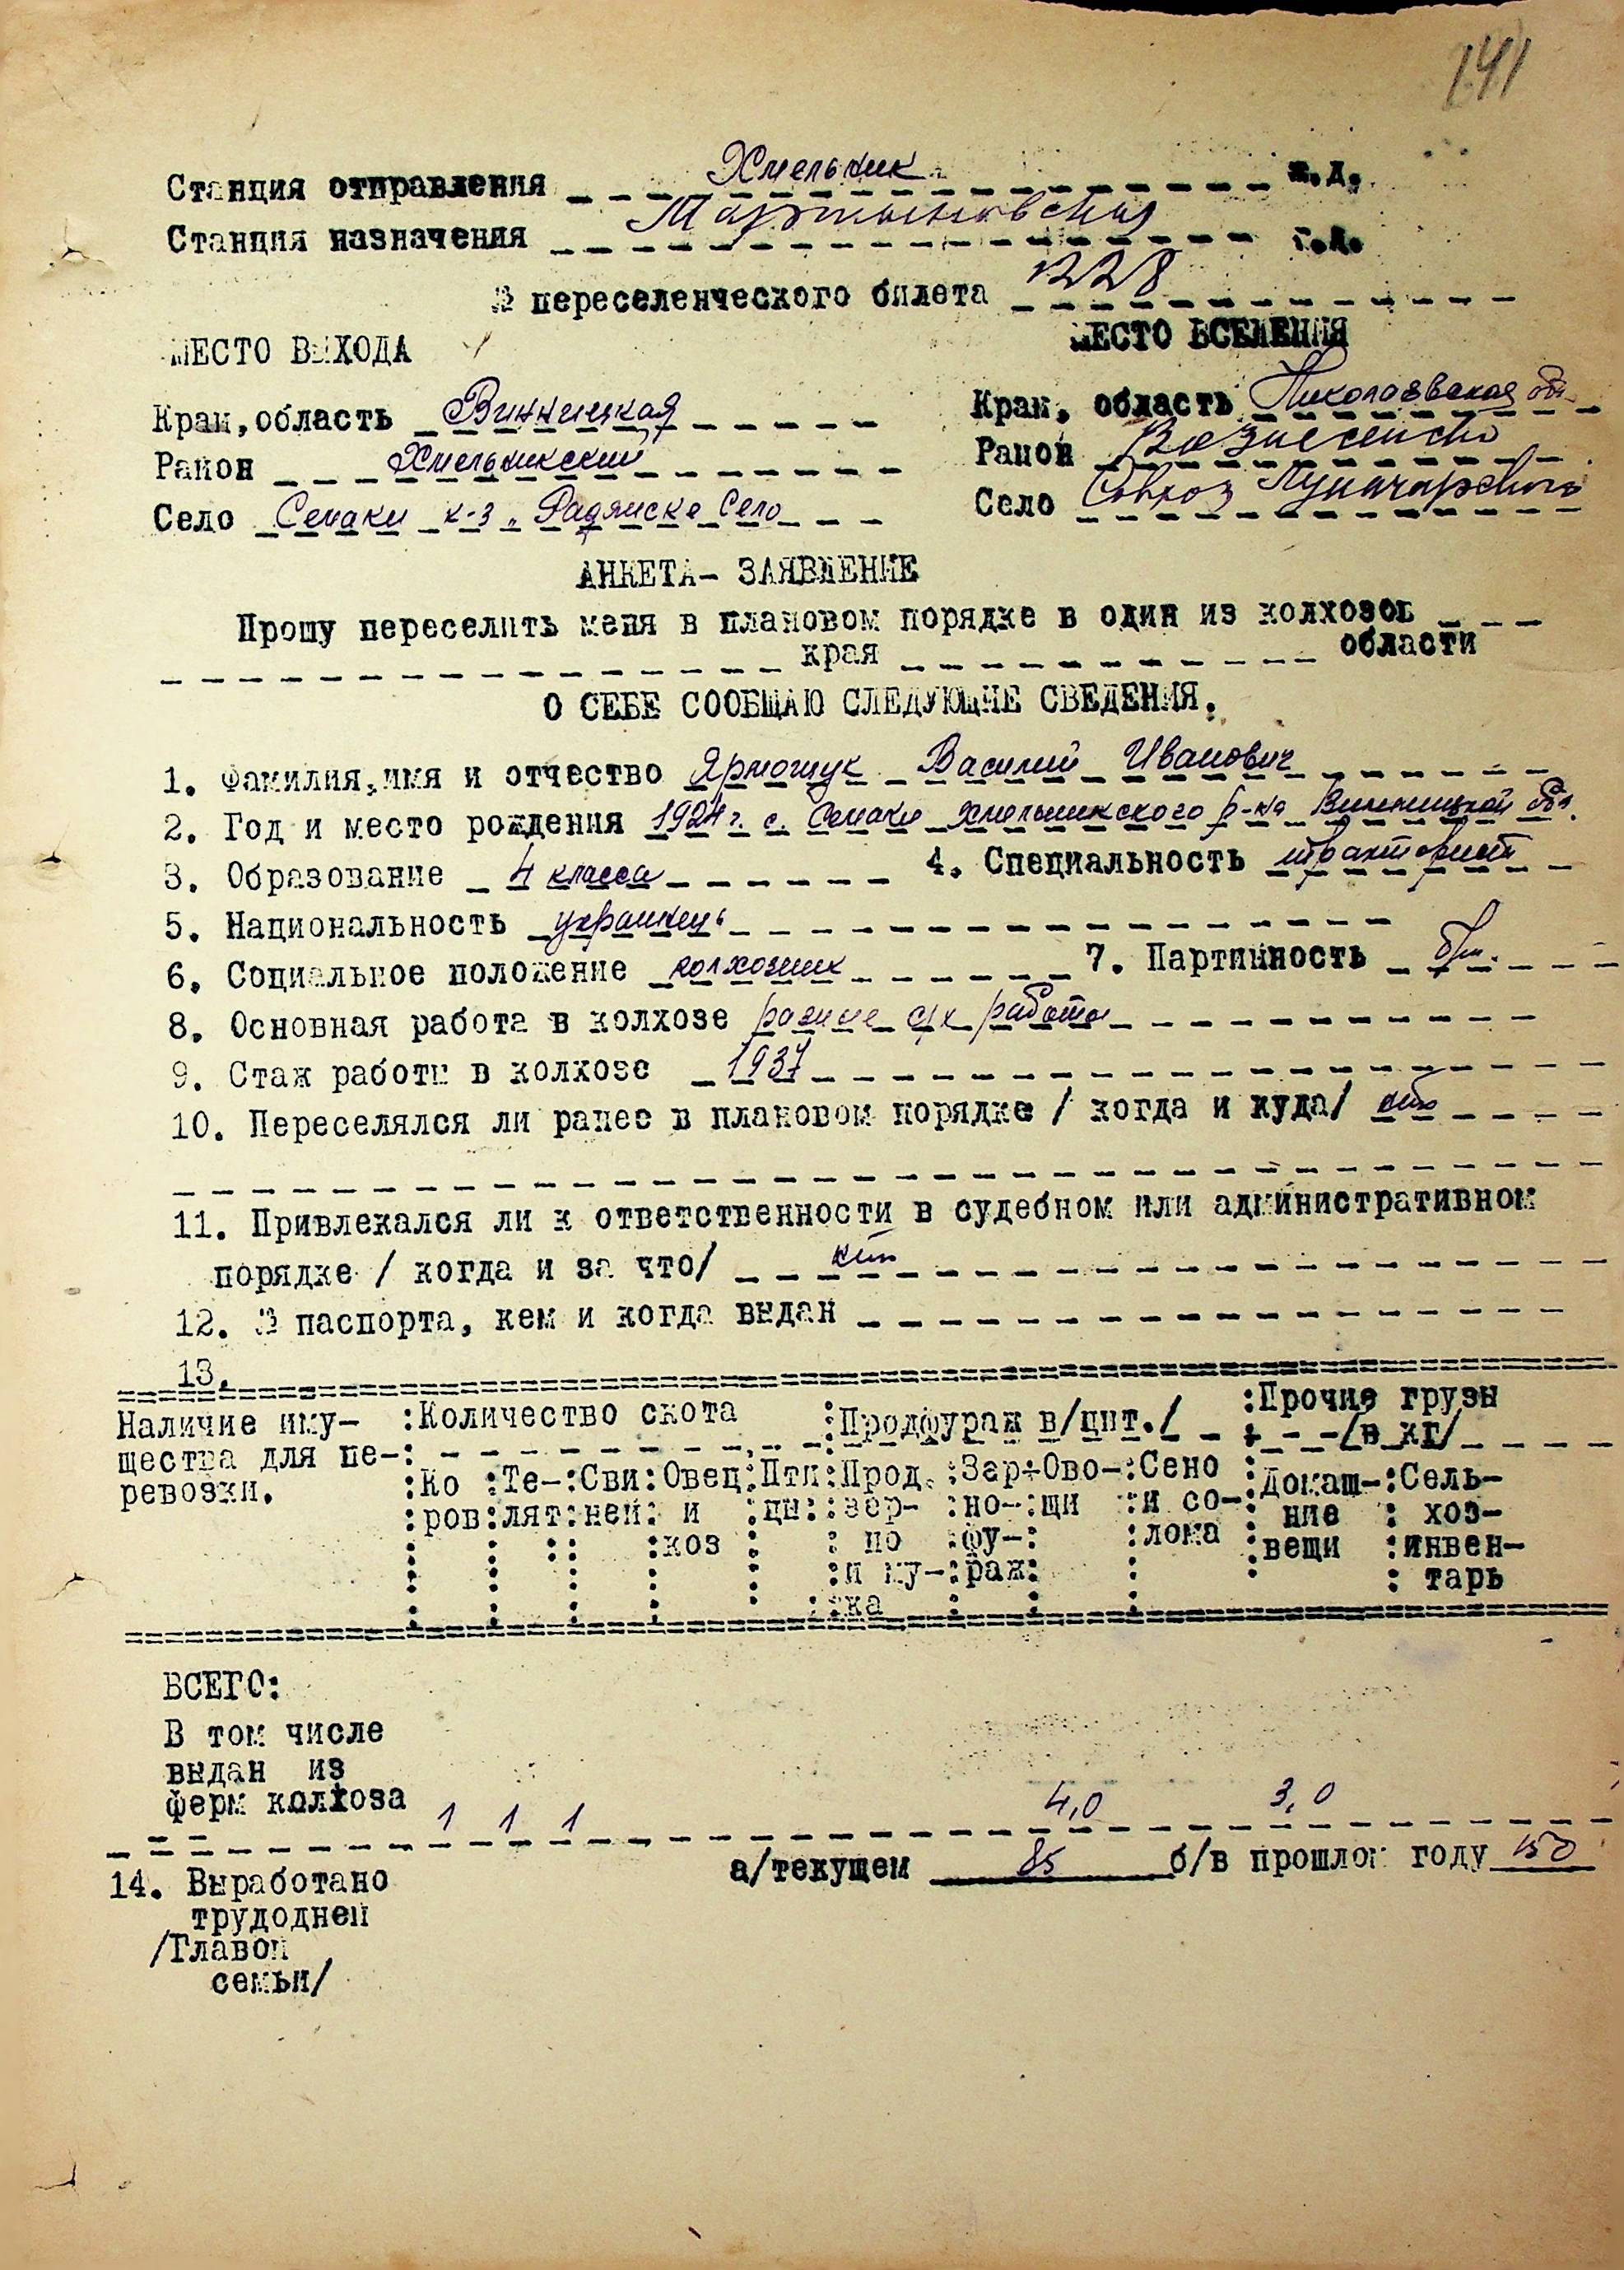 141
Станция отправления Хмельник ж.д.
Станция назначения Мартыновская ж.д.
№ переселенческого билета 1228
МЕСТО ВЫХОДА МЕСТО ВСЕЛЕНИЯ
Край, область Винницкая Край, область Николаевская обл
Район Хмельникский Район Вознесенско
Село Семаки к-з „Радянске Село Село Совхоз Луначарского
АНКЕТА- ЗАЯВЛЕНИЕ
Прошу переселить меня в плановом порядке в один из колхозов
края области
О СЕБЕ СООБЩАЮ СЛЕДУЮЩИЕ СВЕДЕНИЯ.
1. Фамилия, имя и отчество Ярмощук Василий Иванович
2. Год и место рождения 1924 г. с. Семаки Хмельникского р-на Винницкой обл.
3. Образование 4 класса 4. Специальность тракторист
5. Национальность украинець
6. Социальное положение колхозник 7. Партийность б/п.
8. Основная работа в колхозе разные с/х работы
9. Стаж работы в колхозе 1937
10. Переселялся ли ранее в плановом порядке / когда и куда/ нет
11. Привлекался ли к ответственности в судебном или административном
порядке / когда и за что/ нет
12. № паспорта, кем и когда выдан
13.
Наличие иму- :Количество скота :Продфураж в/цнт./ :Прочие грузы
щества для пе-: /в кг/
ревозки. :Ко :Те-:Сви:Овец:Пти:Прод.:Зер-:Ово-:Сено :Домаш-:Сель-
:ров:лят:ней: и :цы: зер- :но-:щи :и со-: ние : хоз-
:коз : но :фу-: :лома :вещи :инвен-
:и му-:раж: : тарь
:ка
ВСЕГО:
В том числе
выдан из
ферм колхоза 1 1 1 4,0 3,0
14. Выработано а/текущем 85 б/в прошлом году 150
трудодней
/Главой
семьи/